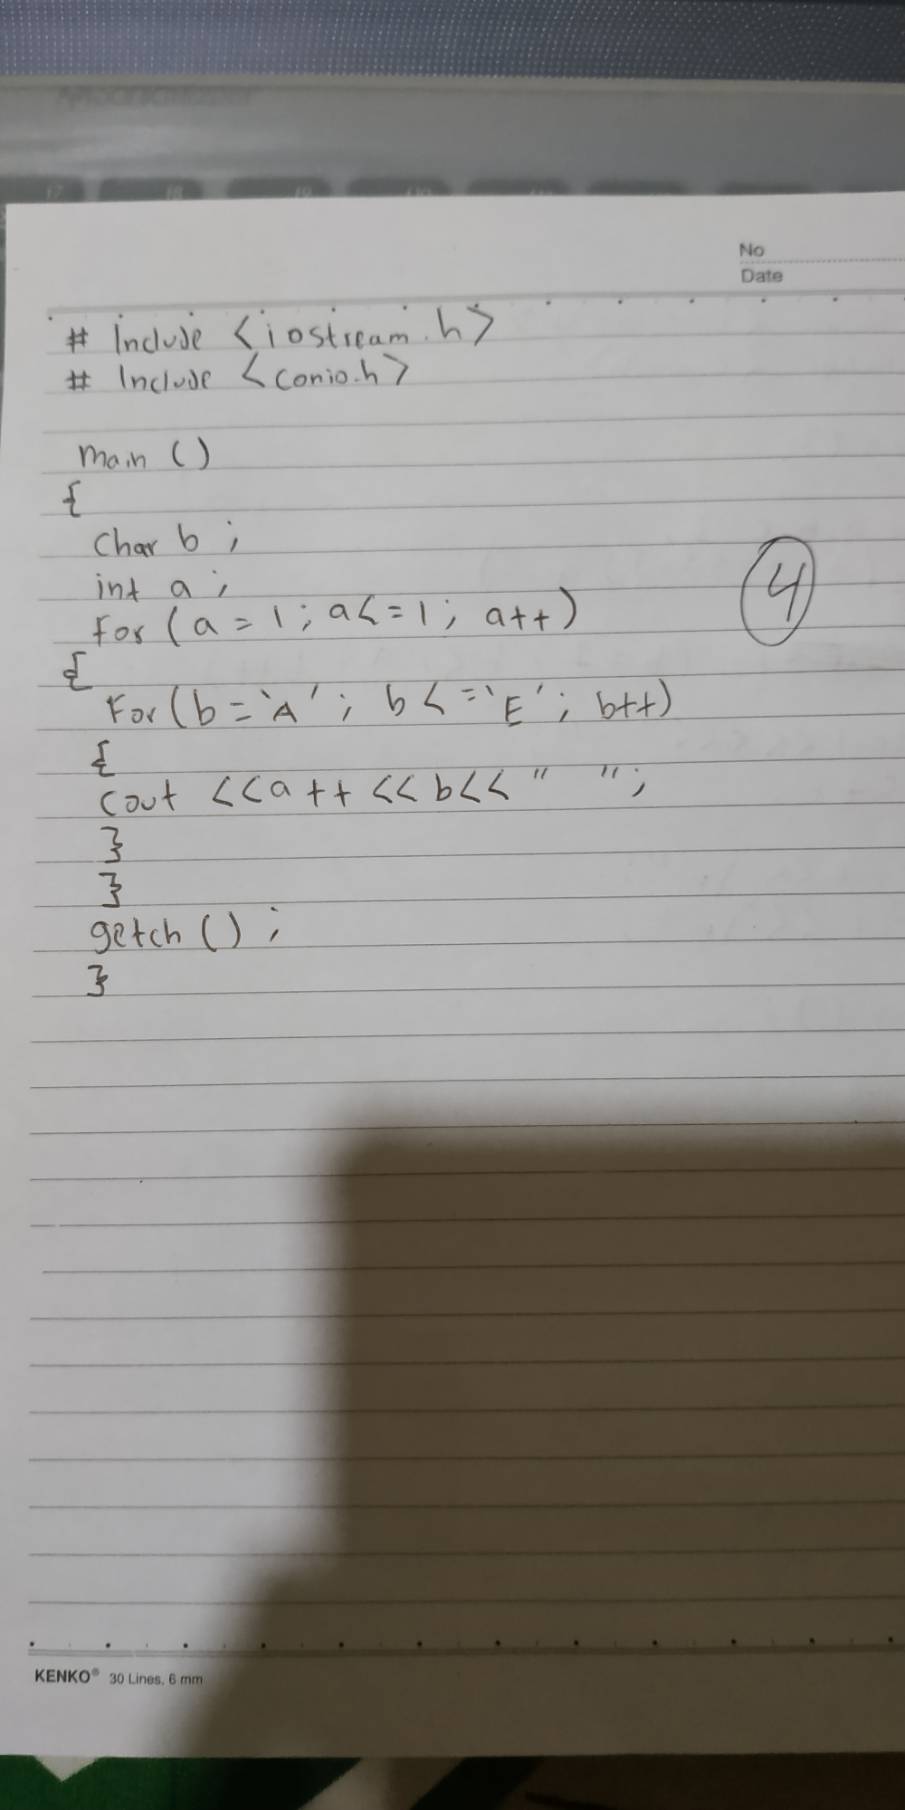 No
Date
# Include <iostream.h>
# Include <conio.h>
main ()
{
Char b ;
int a ;
for (a = 1 ; a<=1 ; a++)
4
{
For (b = 'A' ; b <= 'E' ; b++)
{
Cout <<a ++ << b<< "   " ;
}
}
getch () ;
}
KENKO® 30 Lines, 6 mm